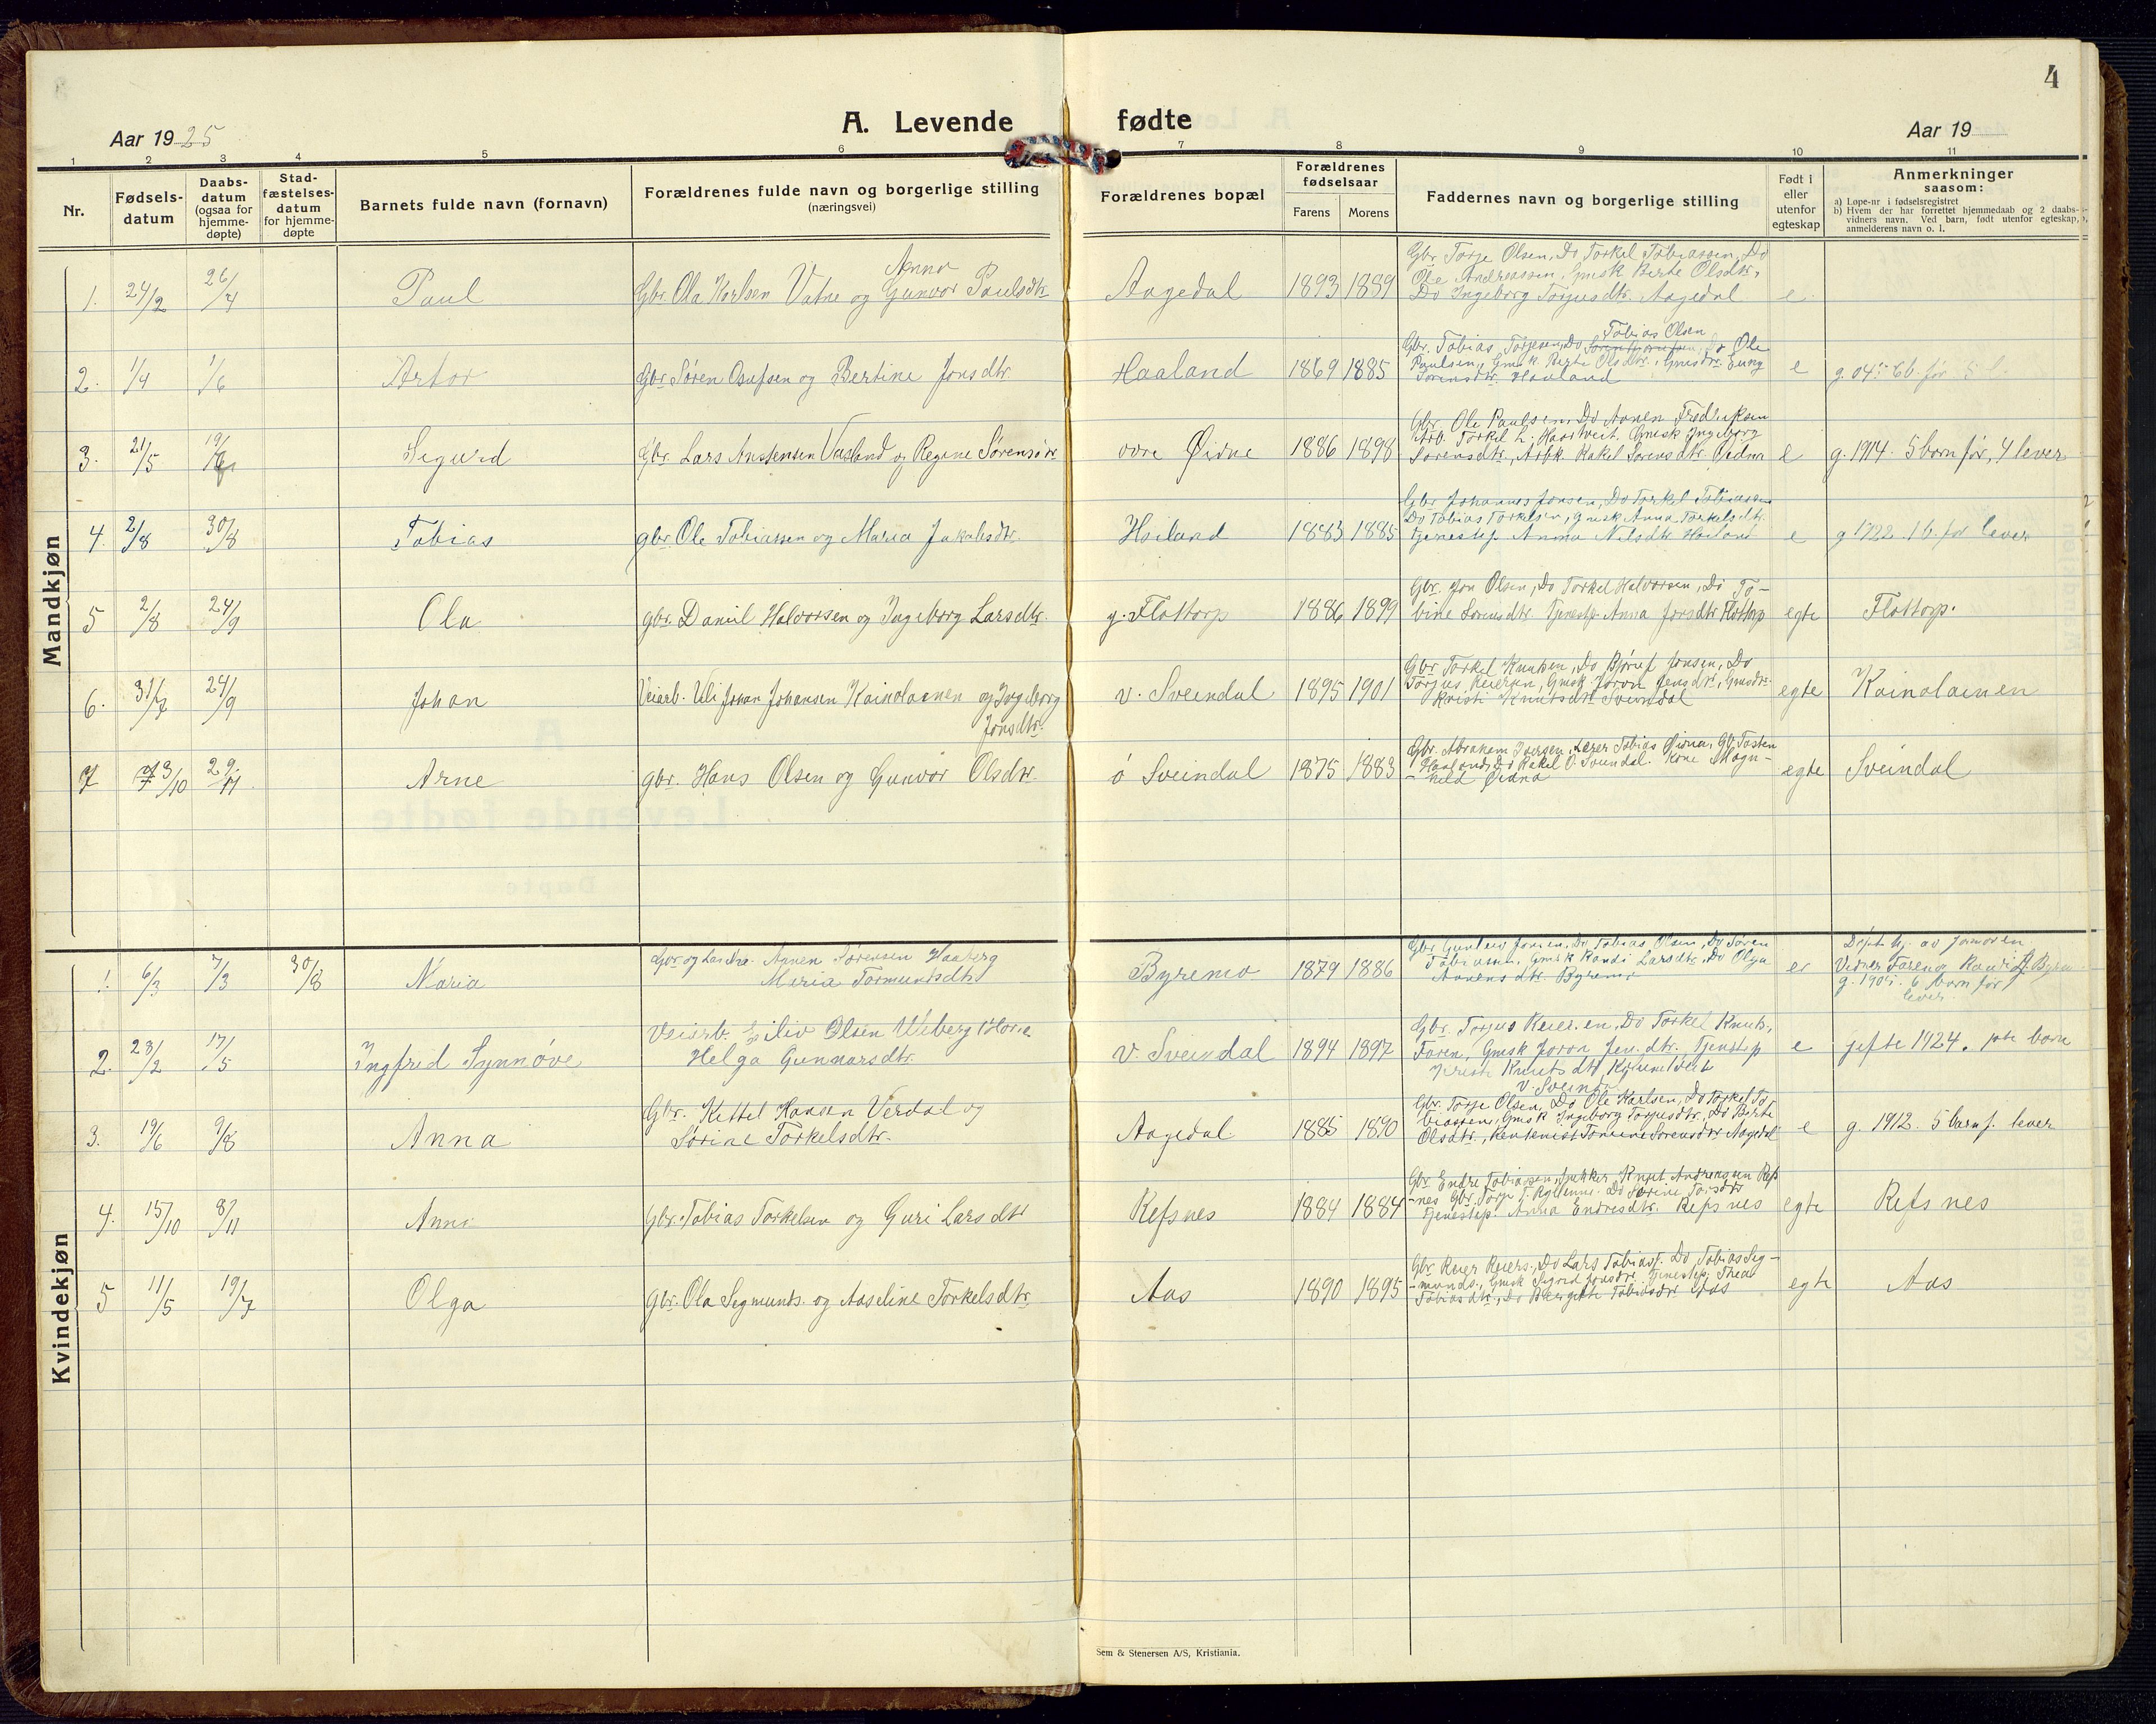 4
A. Levende fødte
Aar 1925
Aar 19
1 2 3 4 5 6 7 8 9 10 11
Nr.
Fødsels-
datum
Daabs-
datum
(ogsaa for
hjemme-
døpte)
Stad-
fæstelses-
datum
for hjemme-
døpte
Barnets fulde navn (fornavn)
Forældrenes fulde navn og borgerlige stilling
(næringsvei)
Forældrenes bopæl
Forældrenes
fødselsaar
Farens Morens
Faddernes navn og borgerlige stilling
Født i
eller
utenfor
egteskap
Anmerkninger
saasom:
a) Løpe-nr i fødselsregistret
b) Hvem der har forrettet hjemmedaab og 2 daabs-
vidners navn. Ved barn, født utenfor egteskap,
anmelderens navn o. l.
Mandkjøn
1. 24/2 26/4 Paul
Anna
Gbr. Ola Karlsen Vatne og Gunvor Paulsdtr
Aagedal 1893 1889
Gbr. Torje Olsen, Do Torkel Tobiassen, Do
Ole Andreassen, Gmsk Berte Olsdtr,
Do Ingeborg Torjusdtr. Aagedal
e
2. 1/4 1/6 Artor
Gbr. Søren Osufsen og Bertine Jonsdtr.
Haaland 1869 1885
Tobias Olsen
Gbr. Tobias Torjesen, Do Do Ole
Paulsen, Gmsk. Berte Olsdtr., Gmsdr.
Sørensdtr. Haaland
e
3. 21/5 19/6 Sigurd
Gbr. Lars Anstensen Vasland og Regine Sørensdtr
øvre Øidne 1886 1898
Gbr. Ole Paulsen, Do Aanen Fredriksen
Arb. Torkel L. Haartveit. Gmsk Ingeborg
Sørensdtr, Arbk. Rakel Sørensdtr. Øidna
e
g. 1914. 5 born før, 4 lever
4. 2/8 30/8 Tobias
gbr. Ole Tobiassen og Maria Jakobsdtr.
Hoiland 1883 1885
Gbr. Johannes Jonsen, Do Torkel Tobiassen
Do Tobias Torkelsen, Gmsk Anna Torkelsdtr.
Tjenestep Anna Nilsdtr Hoiland
e
g 1922. 1 b. før lever
5 2/8 24/9 Ola
gbr. Daniel Halvorsen og Ingeborg Larsdtr.
g. Flottorp 1886 1899
Gbr. Jon Olsen, Do Torkel Halvorsen, Do To-
bine Sørensdtr. Tjenestep. Anna Jonsdtr Flottorp
egte
Flottorp.
6. 31/7 24/9 Johan
Veiarb. Uli Johan Johansen Kainolainen og Ingeborg
Jonsdtr.
v. Sveindal 1895 1901
Gbr. Torkel Knutsen, Do Bjørulf Jonsen, Do
Torjus Reiersen, Gmsk. Joron Jensdtr, Gmsdtr.
Kristi Knutsdtr Sveindal
egte
Kainolainen
7 3/10 29/11 Arne
gbr. Hans Olsen og Gunvor Olsdtr.
ø Sveindal 1875 1883
Gbr. Abraham Iversen, Lærer Tobias Øidna, Gbr Tosten
Haaland, Do Rakel O. Sveindal. Kone Magn-
hild Øidna
egte
Sveindal
Kvindekjøn
1. 6/3 7/3 30/8 Maria
Gbr. og Landha. Aanen Sørensen Haaberg
Meria Tormundsdtr
Byremo 1879 1886
Gbr Gunleiv Jonsen, Do Tobias Olsen, Do Søren
Tobiassen, Gmsk Randi Larsdtr, Do Olga
Aanensdtr. Byremo
e
Døpt hj. av jormoren
Vidner Faren og
6 børn før
lever.
2. 23/2 17/5 Ingfrid Synnøve
Veiarb. Eiliv Olsen
Helga Gunnarsdtr.
v. Sveindal 1894 1897
Gbr. Torjus Reiersen, Do Torkel Knuts.,
Faren, Gmsk Joron Jensdtr. Tjenestep
Kristi Knutsdtr
v. Sveindal
e
gifte 1924. born
3. 19/6 9/8 Anna
Gbr. Kittel Hansen Verdal og
Sørine Torkelsdtr.
Aagedal 1885 1890
Gbr. Torje Olsen, Do Ole Karlsen, Do Torkel To-
biassen, Gmsk Ingeborg Torjusdtr, Do Berte
Olsdtr, Sørensdtr Aagedal
e
g. 1912. 5 barn f. lever
4. 15/10 8/11 Anna
Gbr. Tobias Torkelsen og Guri Larsdtr
Refsnes 1884 1884
Gbr Endre Tobiassen, Snekker Knut Andreassen Refs
nes Gbr. Torje T. Do Sørine
Tjenestep. Anna Endresdtr. Refsnes
egte
Refsnes
5 11/5 19/7 Olga
Gbr. Ola Segmunds. og Aaseline Torkelsdtr
Aas 1890 1895
Gbr Reier Reiers., Do Lars Tobiass. Do Tobias Seg-
munds., Gmsk Sigrid Jonsdtr. Tjenestep. Thea
Tobiasdtr., Do Bergitte Tobiasdtr Aas
egte
Aas
Sem & Stenersen A/S, Kristiania.